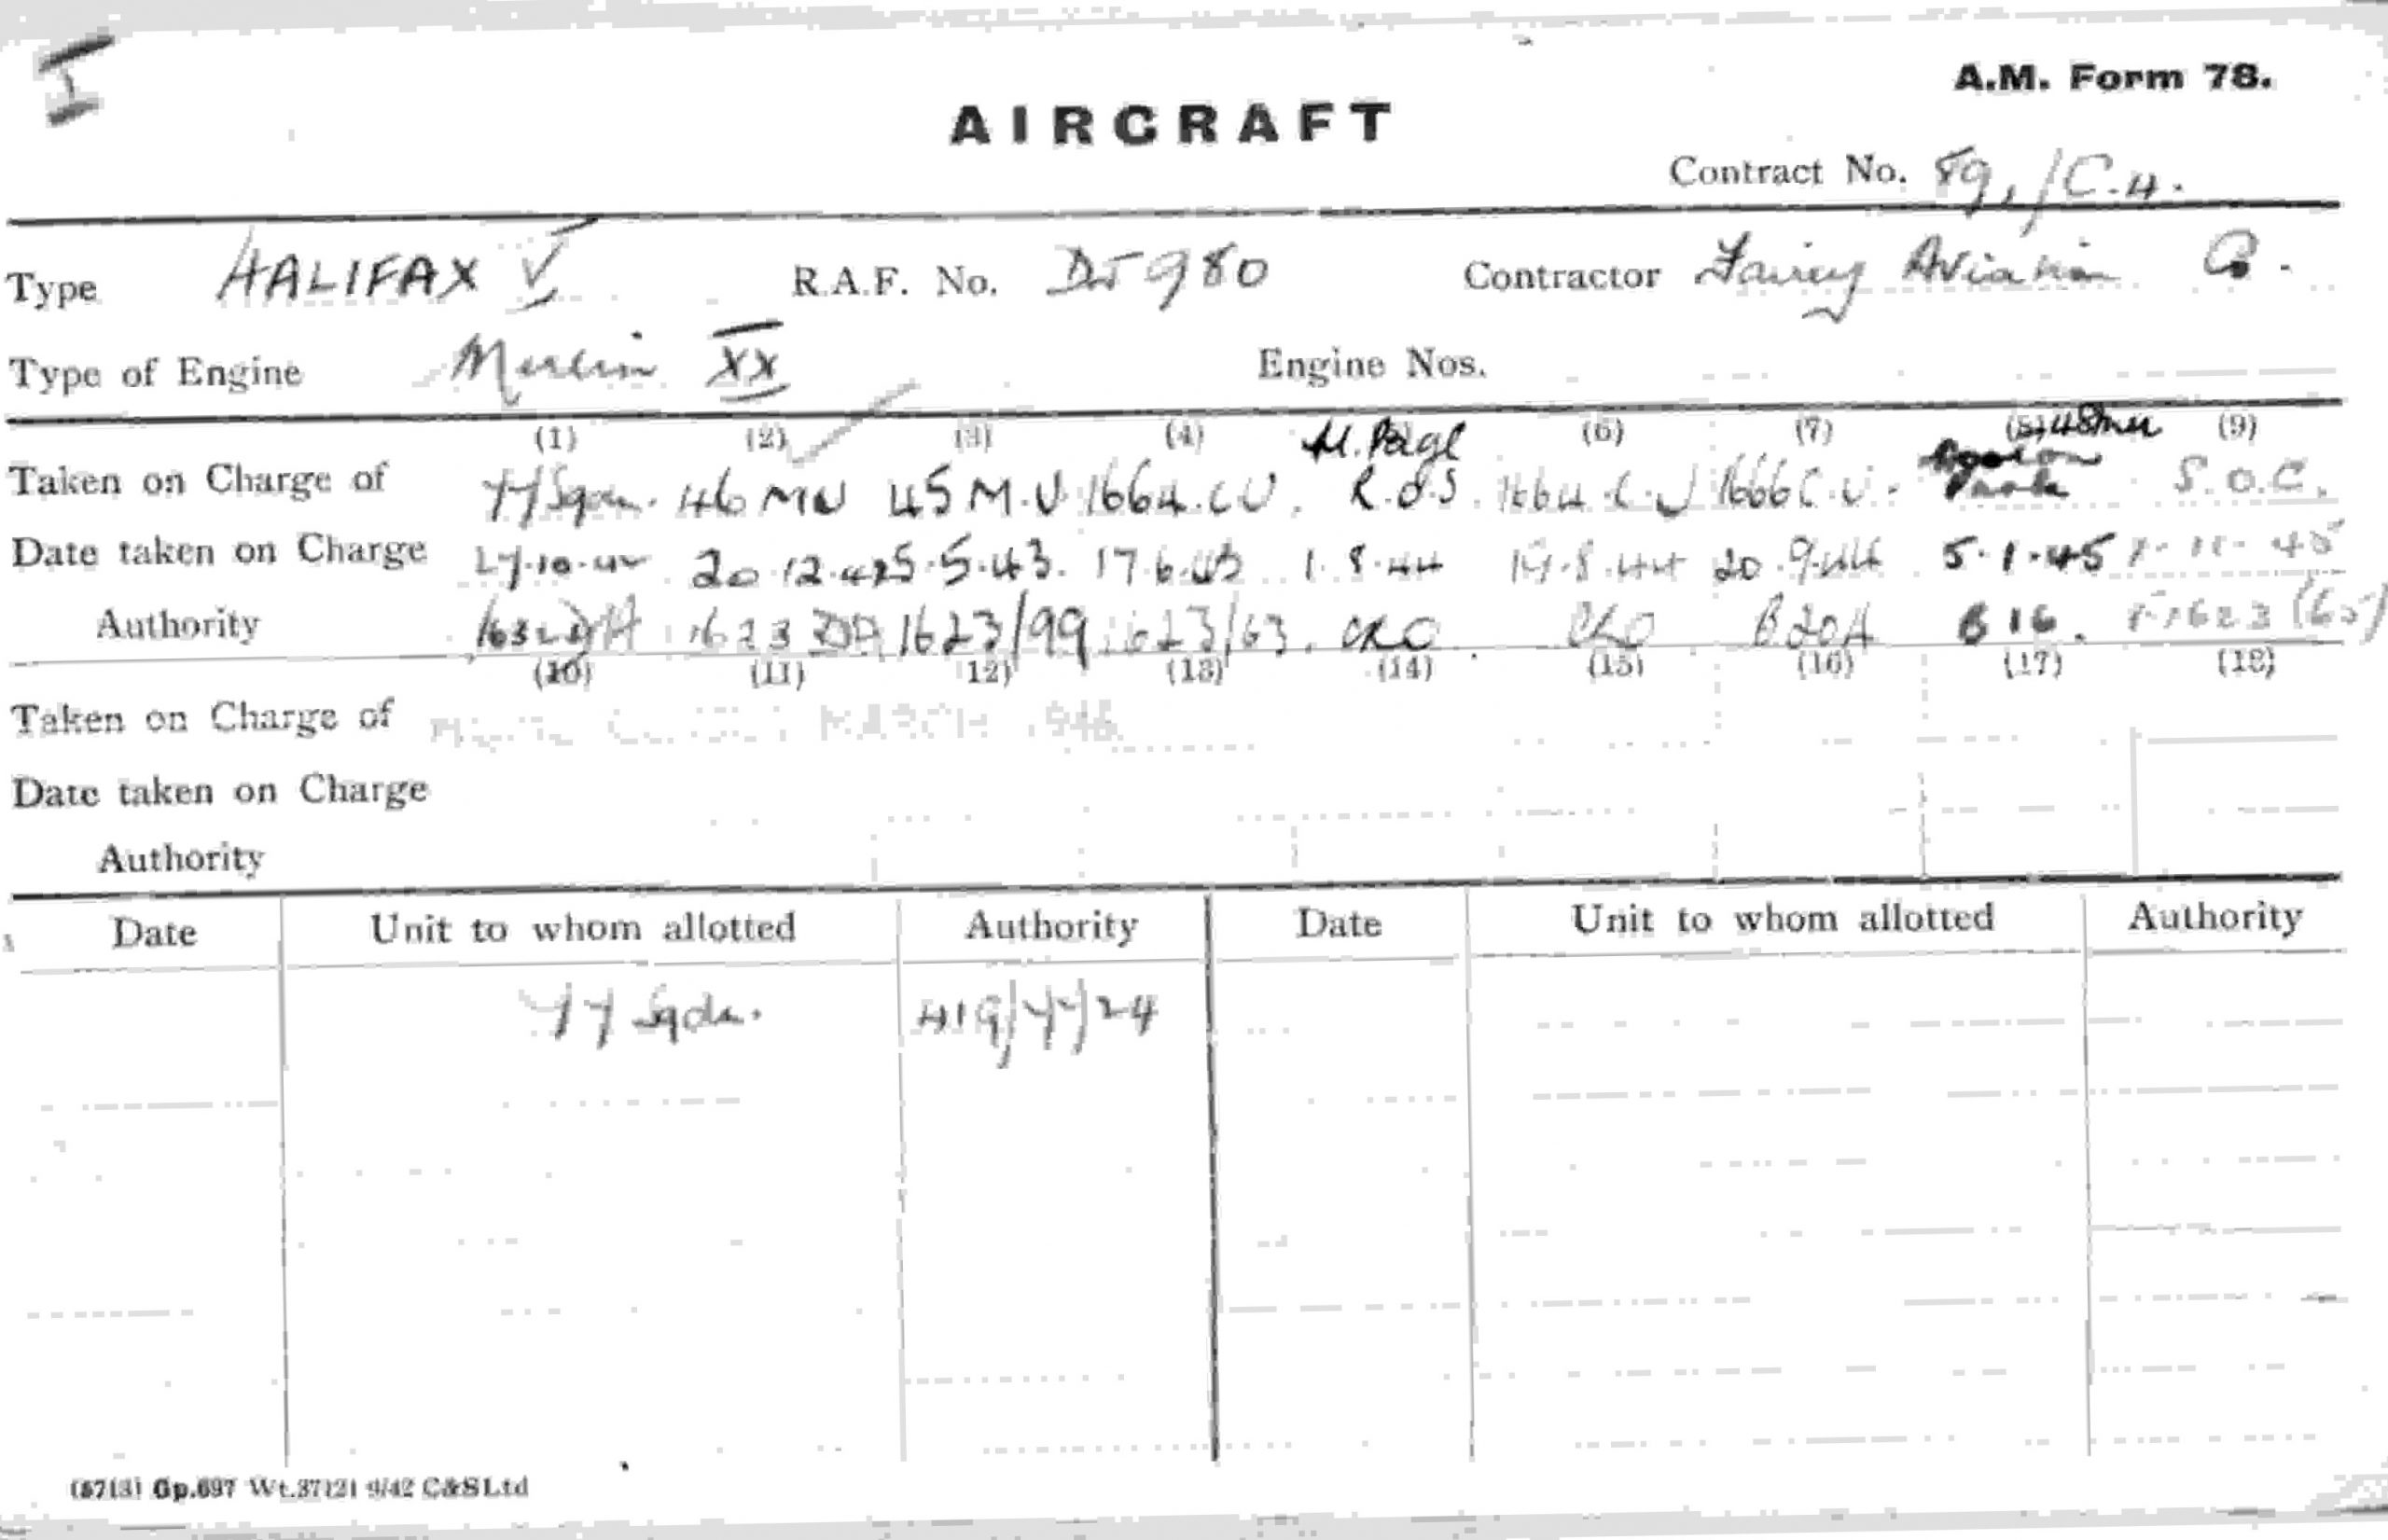 I
A.M. Form 78.
AIRCRAFT
Contract No. 89./C.4.
Type HALIFAX V R.A.F. No. DJ980 Contractor Fairey Aviation Co.
Type of Engine Merlin XX Engine Nos.
(1) (2) (3) (4) (6) (7) (8) 48 MU (9)
Taken on Charge of 77 Sqdn. 46 MU 45 M.U 1664.CU. H. Page R.O.S. 1664.C.U 1666 C.U. S.O.C.
Date taken on Charge 27.10.42 20.12.42 5.5.43. 17.6.43 1.8.44 19.8.44 20.9.44 5.1.45 1.11.45
Authority 1623 DA 1623/99 1623/63. CRO CRO B20A B16.
(10) (11) (12) (13) (14) (15) (16) (17) (18)
Taken on Charge of MARCH 1946
Date taken on Charge
Authority
Date Unit to whom allotted Authority Date Unit to whom allotted Authority
77 Sqdn. 419/77/24
(8713) Gp.697 Wt.37121 9/42 C&S Ltd